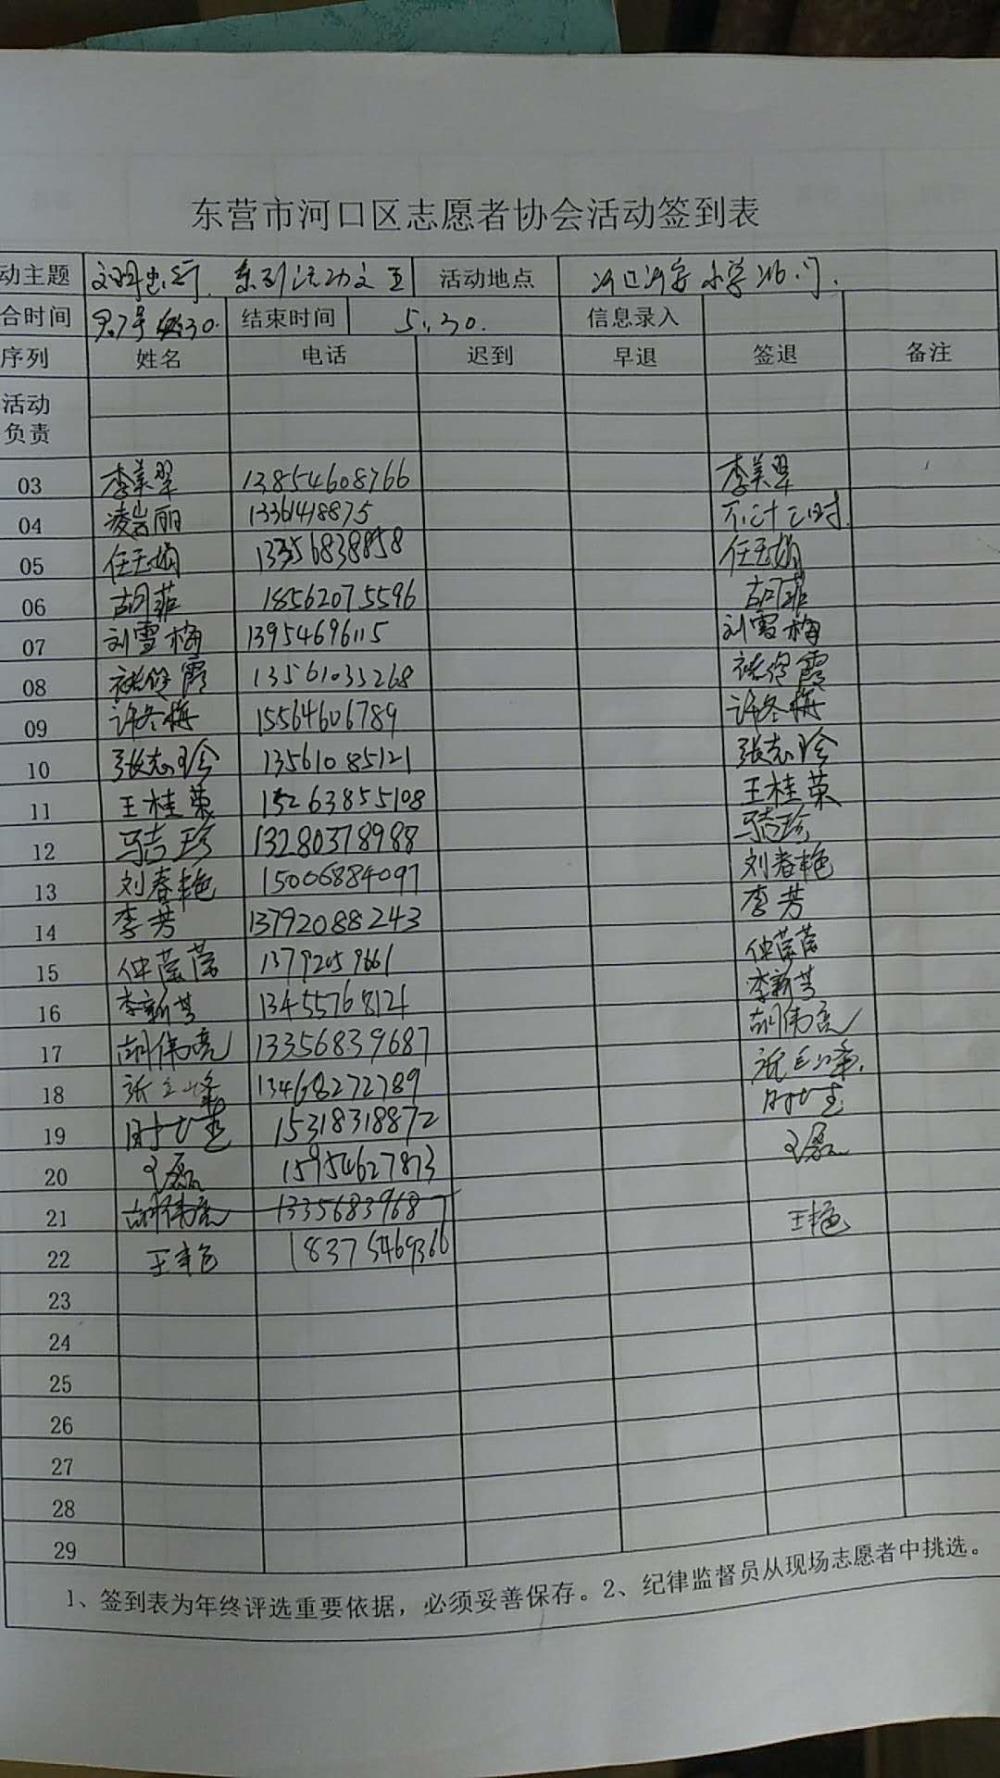 东营市河口区志愿者协会活动签到表
动主题 文明出行 系列活动之五 活动地点 河口河安小学北门.
合时间 30. 结束时间 5:30. 信息录入
序列 姓名 电话 迟到 早退 签退 备注
活动
负责
03 李美翠 13854608766 李美翠
04 凌岩丽 13361418875 不计工时.
05 任玉娟 13356838858 任玉娟
06 胡菲 18562075596 胡菲
07 刘雪梅 13954696115 刘雪梅
08 褚俊霞 13561033268 褚俊霞
09 许冬梅 15564606789 许冬梅
10 张志珍 13561085121 张志珍
11 王桂荣 15263855108 王桂荣
12 马吉珍 13280378988 马吉珍
13 刘春艳 15006884097 刘春艳
14 李芳 13792088243 李芳
15 仲蕾蕾 13792059661
16 李新芳 13455768121 李新芳
17 胡伟亮 13356839687 胡伟亮
18 13468272789
19 15318318872
20 王磊 15954627873 王磊
21 胡伟亮 13356839687 王艳
22 王艳 18375469366
23
24
25
26
27
28
29
1、签到表为年终评选重要依据，必须妥善保存。2、纪律监督员从现场志愿者中挑选。